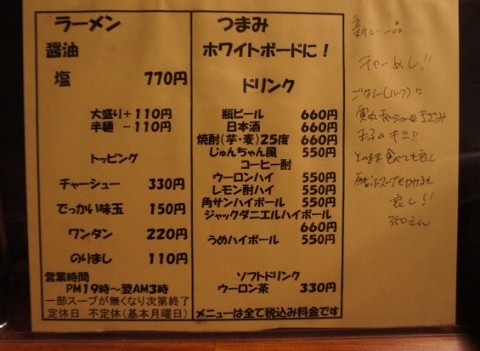 ラーメン
醤油
塩 770円
大盛り+110円
半麺 −110円
トッピング
チャーシュー 330円
でっかい味玉 150円
ワンタン 220円
のりまし 110円
営業時間
PM19時〜翌AM3時
一部スープが無くなり次第終了
定休日 不定休(基本月曜日)
つまみ
ホワイトボードに!
ドリンク
瓶ビール 660円
日本酒 660円
焼酎(芋・麦)25度 660円
じゅんちゃん風 550円
コーヒー酎
ウーロンハイ 550円
レモン酎ハイ 550円
角サンハイボール 550円
ジャックダニエルハイボール
660円
うめハイボール 550円
ソフトドリンク
ウーロン茶 330円
メニューは全て税込み料金です
チャーめし!!
ごはん(ハーフ)に
そのまま食べても良し
良し!!
350えん